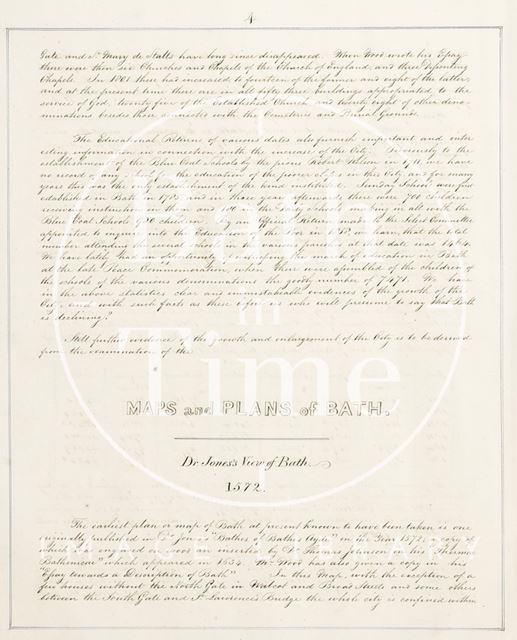 4
Gate and St. Mary de Stalls have long since disappeared. When Wood wrote his Essay
there were then six Churches and Chapels of the Church of England, and three Dissenting
Chapels. In 1801 these had increased to fourteen of the former and eight of the latter,
and at the present time there are in all fifty three buildings appropriated to the
service of God, twenty five of the Established Church and twenty eight of other deno-
minations besides those connected with the Cemeteries and Burial Grounds.
The Educational Returns of various dates also furnish important and inter
esting information in connection with the increase of the City. Previously to the
establishment of the Blue Coat Schools by the pious Robert Nelson in 1711 we have
no record of any school for the education of the poorer classes in this City and for many
years this was the only establishment of the kind instituted. Sunday Schools were first
established in Bath in 1785 and in three years afterwards there were 700 children
receiving instruction in them and in the Day Schools
Blue Coat School children. By an Official Return made to the Select Committee
appointed to inquire into the Education of the Poor in 1818 we learn, that the total
number attending the several schools in the various parishes at that date was 1464.
We have lately had an opportunity of witnessing the march of education in Bath
at the late Peace Commemoration, when there were assembled of the children of
the schools of the various denominations the goodly number of 7,471. We have
in the above statistics clear and unmistakable evidences of the growth of the
City, and with such facts as these before us who will presume to say that Bath
is declining?
Still further evidence of the growth and enlargement of the City is to be derived
from the examination of the
MAPS and PLANS of BATH.
Dr. Jones's View of Bath.
1572.
The earliest plan or map of Bath at present known to have been taken is one
originally published in Dr. Jones's "Bathes of Bathes Ayde" in the Year 1572, a copy of
which was engraved on wood and inserted by Dr. Thomas Johnson in his "Thermæ
Bathonicæ" which appeared in 1634. Mr. Wood has also given a copy in his
"Essay towards a Description of Bath". In this Map, with the exception of a
few houses without the North Gate in Walcot and Broad Streets and some others
between the South Gate and St. Lawrence's Bridge the whole city is confined within
Bath
in
Time